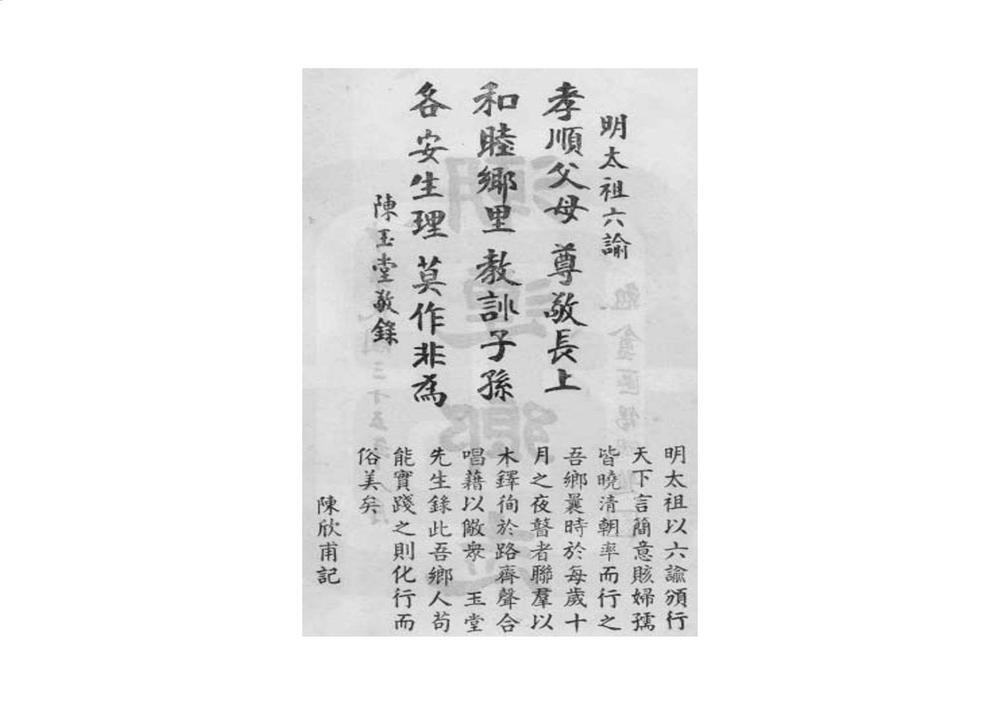 明太祖六諭
孝順父母 尊敬長上
和睦鄉里 教訓子孫
各安生理 莫作非為
陳玉堂敬錄
明太祖以六諭頒行
天下言簡意賅婦孺
皆曉清朝率而行之
吾鄉曩時於每歲十
月之夜瞽者聯羣以
木鐸徇於路齊聲合
唱藉以儆衆 玉堂
先生錄此吾鄉人苟
能實踐之則化行而
俗美矣
陳欣甫記